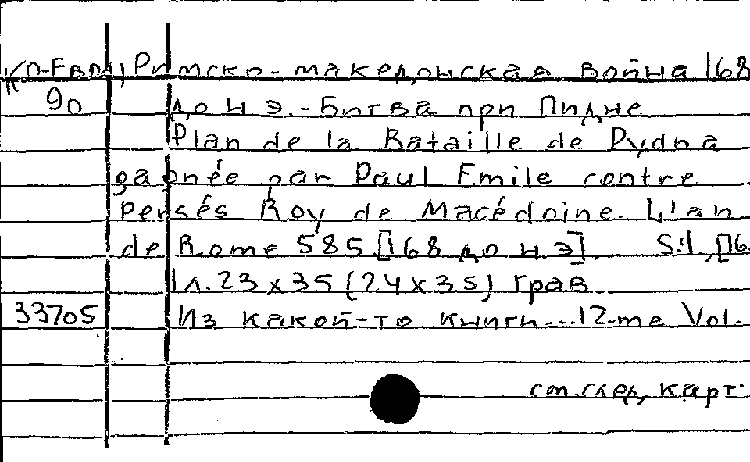 Ко-Евр, Римско-македонская война 168
90 до н э.-Битва при Пидне
Plan de la Bataille de Pydna
gagnée par Paul Emile contre
Persés Roy de Macédoine. L'an
de Rome 585 [168 до н э]. S.l.,[16
1л. 23х35 (24х35) грав.
33705 Из какой-то книги...12-me Vol.
см.след. карт.